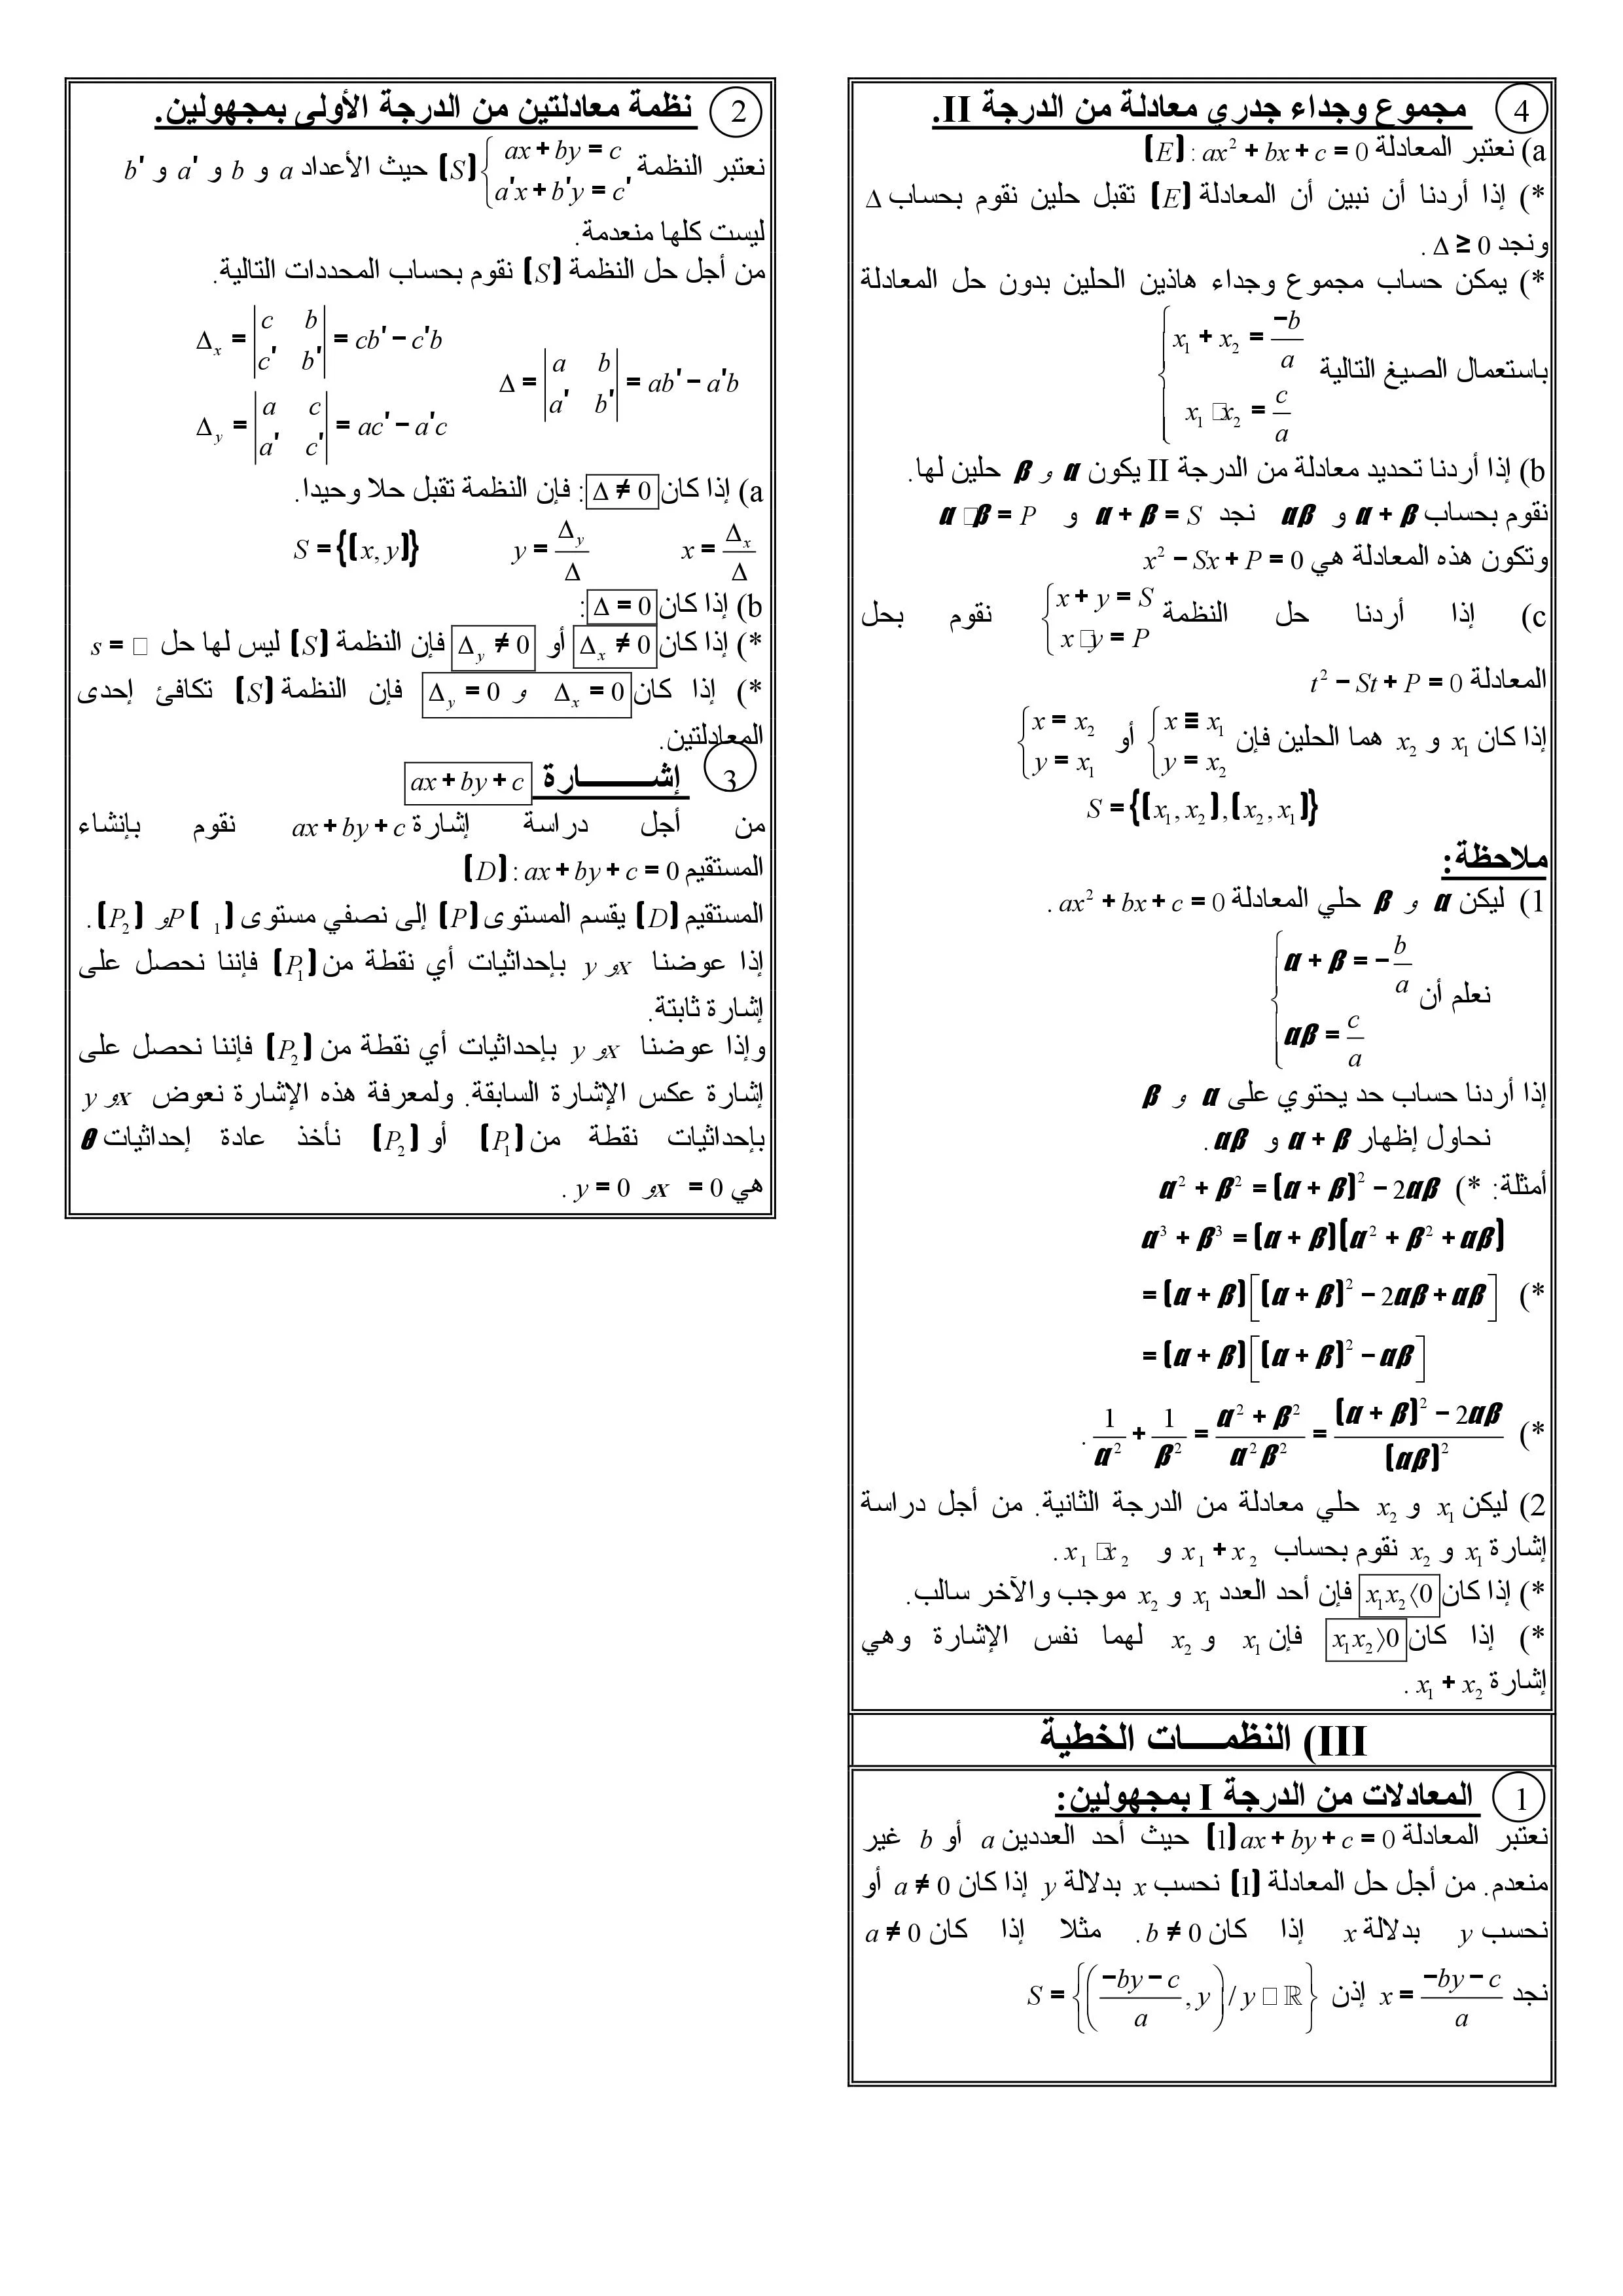 4 مجموع وجداء جدري معادلة من الدرجة II.
a) نعتبر المعادلة (E) : ax² + bx + c = 0
*) إذا أردنا أن نبين أن المعادلة (E) تقبل حلين نقوم بحساب Δ
ونجد Δ ≥ 0 .
*) يمكن حساب مجموع وجداء هاذين الحلين بدون حل المعادلة
باستعمال الصيغ التالية { x₁ + x₂ = −b/a
x₁ □ x₂ = c/a
b) إذا أردنا تحديد معادلة من الدرجة II يكون α و β حلين لها.
نقوم بحساب α + β و αβ نجد α + β = S و α □ β = P
وتكون هذه المعادلة هي x² − Sx + P = 0
c) إذا أردنا حل النظمة { x + y = S ; x □ y = P نقوم بحل
المعادلة t² − St + P = 0
إذا كان x₁ و x₂ هما الحلين فإن { x = x₁ ; y = x₂ أو { x = x₂ ; y = x₁
S = {(x₁, x₂), (x₂, x₁)}
ملاحظة:
1) ليكن α و β حلي المعادلة ax² + bx + c = 0 .
نعلم أن { α + β = − b/a
αβ = c/a
إذا أردنا حساب حد يحتوي على α و β
نحاول إظهار α + β و αβ .
أمثلة: *) α² + β² = (α + β)² − 2αβ
α³ + β³ = (α + β)(α² + β² + αβ)
*) = (α + β)[(α + β)² − 2αβ + αβ]
= (α + β)[(α + β)² − αβ]
*) 1/α² + 1/β² = (α² + β²)/(α²β²) = ((α + β)² − 2αβ)/(αβ)² .
2) ليكن x₁ و x₂ حلي معادلة من الدرجة الثانية. من أجل دراسة
إشارة x₁ و x₂ نقوم بحساب x₁ + x₂ و x₁ □ x₂ .
*) إذا كان x₁x₂⟨0 فإن أحد العدد x₁ و x₂ موجب والآخر سالب.
*) إذا كان x₁x₂⟩0 فإن x₁ و x₂ لهما نفس الإشارة وهي
إشارة x₁ + x₂ .
III) النظمـــات الخطية
1 المعادلات من الدرجة I بمجهولين:
نعتبر المعادلة (1) ax + by + c = 0 حيث أحد العددين a أو b غير
منعدم. من أجل حل المعادلة (1) نحسب x بدلالة y إذا كان a ≠ 0 أو
نحسب y بدلالة x إذا كان b ≠ 0. مثلا إذا كان a ≠ 0
نجد x = (−by − c)/a إذن S = {((−by − c)/a , y) / y □ ℝ}
2 نظمة معادلتين من الدرجة الأولى بمجهولين.
نعتبر النظمة (S) { ax + by = c ; a'x + b'y = c' حيث الأعداد a و b و a' و b'
ليست كلها منعدمة.
من أجل حل النظمة (S) نقوم بحساب المحددات التالية.
Δ = |a b ; a' b'| = ab' − a'b
Δx = |c b ; c' b'| = cb' − c'b
Δy = |a c ; a' c'| = ac' − a'c
a) إذا كان Δ ≠ 0 : فإن النظمة تقبل حلا وحيدا.
x = Δx/Δ y = Δy/Δ S = {(x, y)}
b) إذا كان Δ = 0 :
*) إذا كان Δx ≠ 0 أو Δy ≠ 0 فإن النظمة (S) ليس لها حل s = □
*) إذا كان Δx = 0 و Δy = 0 فإن النظمة (S) تكافئ إحدى
المعادلتين.
3 إشـــــــارة ax + by + c
من أجل دراسة إشارة ax + by + c نقوم بإنشاء
المستقيم (D) : ax + by + c = 0
المستقيم (D) يقسم المستوى (P) إلى نصفي مستوى (P₁) و (P₂) .
إذا عوضنا x و y بإحداثيات أي نقطة من (P₁) فإننا نحصل على
إشارة ثابتة.
وإذا عوضنا x و y بإحداثيات أي نقطة من (P₂) فإننا نحصل على
إشارة عكس الإشارة السابقة. ولمعرفة هذه الإشارة نعوض x و y
بإحداثيات نقطة من (P₁) أو (P₂) نأخذ عادة إحداثيات 0
هي x = 0 و y = 0 .